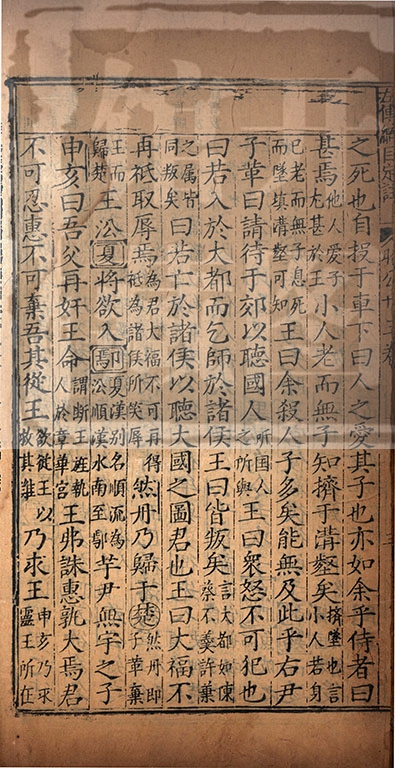 左傳綱目定註
之死也自投于車下曰人之愛其子也亦如余乎侍者曰
甚焉他人愛子尤甚於王小人老而無子知擠于溝壑矣擠墜也言小人若身
已老而無子息死而墜塡溝壑可知王曰余殺人子多矣能無及此乎右尹
子革曰請待于郊以聽國人所國人之所與王曰衆怒不可犯也
曰若入於大都而乞師於諸侯王曰皆叛矣言大都如陳蔡不羹許葉
之属皆同叛矣曰若亡於諸侯以聽大國之圖君也王曰大福不
再祇取辱焉為君大福不可再得祇為諸侯所笑辱然丹乃歸于楚然丹即子革棄
王而歸楚王沿夏將欲入鄢夏漢别名順流為沿順漢水南至鄢芋尹無宇之子
申亥曰吾父再奸王命謂断王旌執人於章華宮王弗誅惠孰大焉君
不可忍惠不可棄吾其從王欲從王以救其難乃求王申亥乃求靈王所在